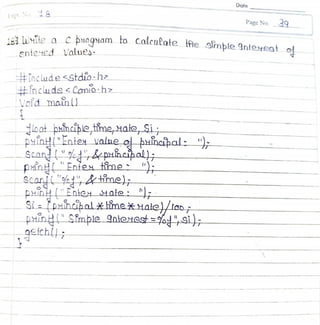 Date
Expt. No. 18
Page No. 39
18) Write a C program to calculate the simple Interest of
entered values.
#include <stdio.h>
#include <conio.h>
Void main()
{
float principle, time, rate, Si;
printf("Enter value of principal: ");
Scanf("%f", &principal);
printf("Enter time: ");
Scanf("%f", &time);
printf("Enter rate: ");
Si = (principal*time*rate)/100;
printf("Simple Interest=%f", Si);
getch();
}